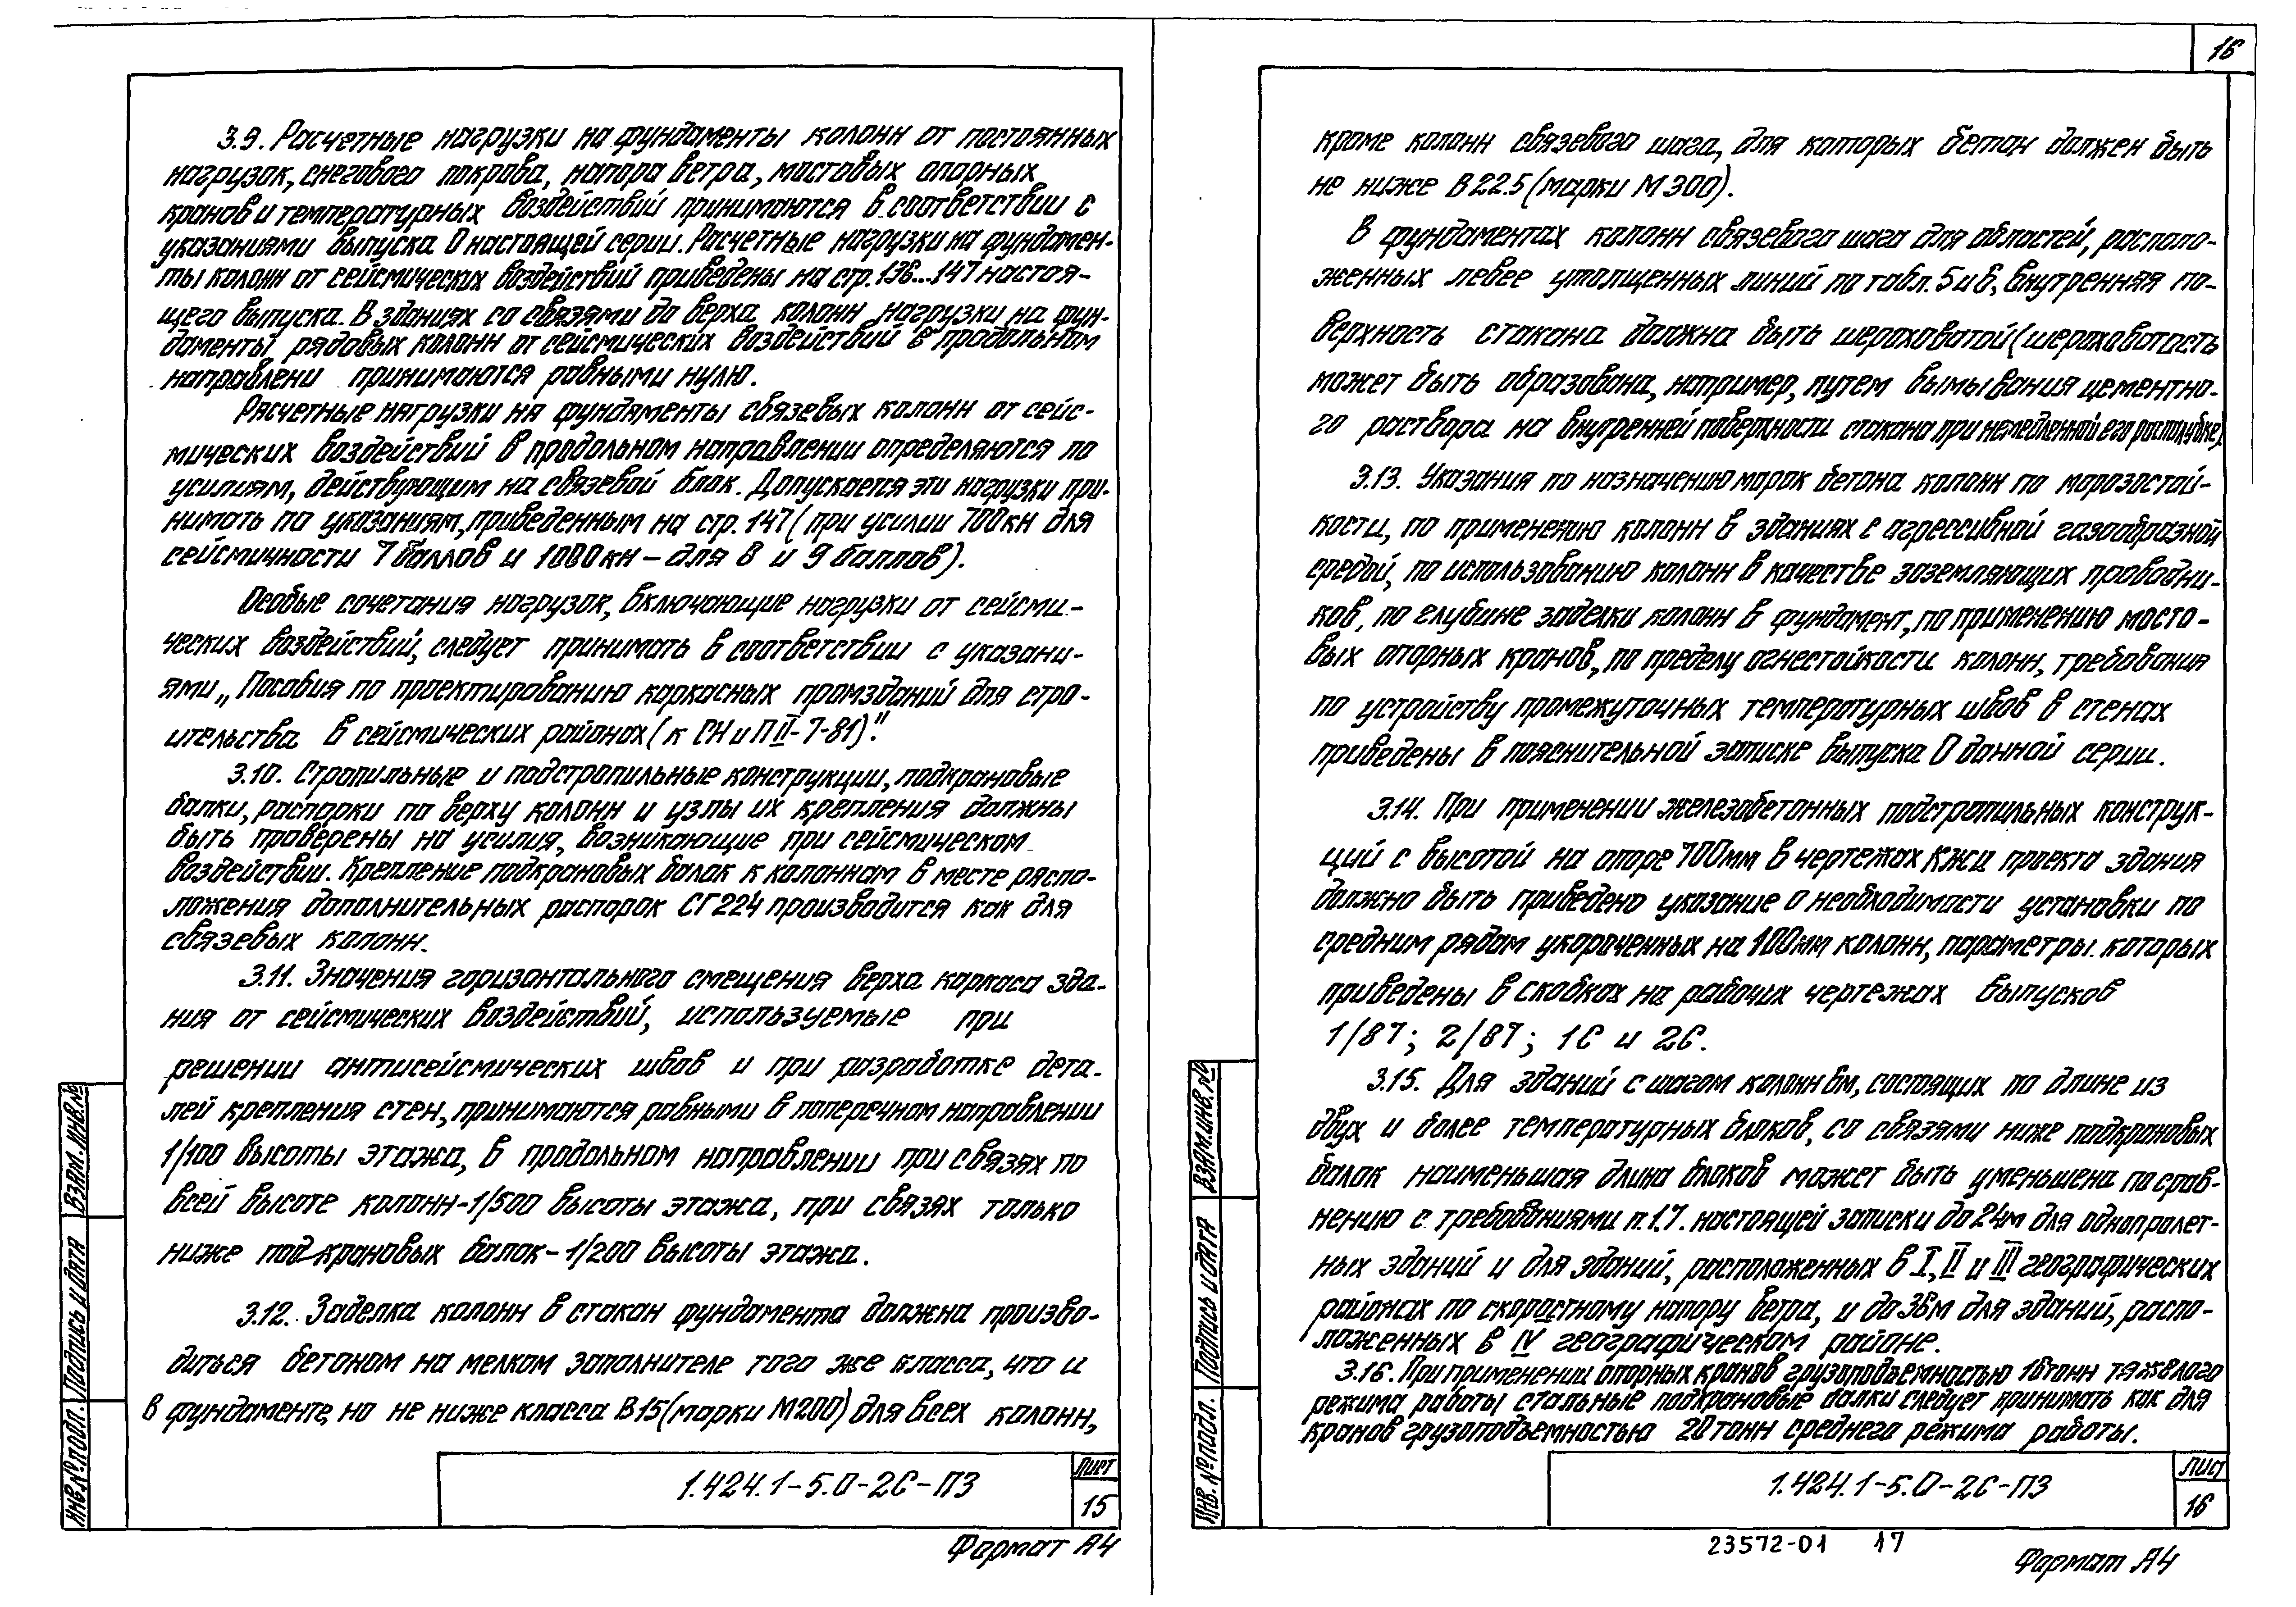 3.9. Расчетные нагрузки на фундаменты колонн от постоянных
нагрузок, снегового покрова, напора ветра, мостовых опорных
кранов и температурных воздействий принимаются в соответствии с
указаниями выпуска 0 настоящей серии. Расчетные нагрузки на фундамен-
ты колонн от сейсмических воздействий приведены на стр. 136...147 настоя-
щего выпуска. В зданиях со связями до верха колонн нагрузки на фун-
даменты рядовых колонн от сейсмических воздействий в продольном
направлени принимаются равными нулю.
Расчетные нагрузки на фундаменты связевых колонн от сейс-
мических воздействий в продольном направлении определяются по
усилиям, действующим на связевой блок. Допускается эти нагрузки при-
нимать по указаниям, приведенным на стр. 147 (при усилии 700кн для
сейсмичности 7 баллов и 1000кн – для 8 и 9 баллов).
Особые сочетания нагрузок, включающие нагрузки от сейсми-
ческих воздействий, следует принимать в соответствии с указани-
ями „Пособия по проектированию каркасных промзданий для стро-
ительства в сейсмических районах (к СН и П II-7-81)".
3.10. Стропильные и подстропильные конструкции, подкрановые
балки, распорки по верху колонн и узлы их крепления должны
быть проверены на усилия, возникающие при сейсмическом
воздействии. Крепление подкрановых балок к колоннам в месте распо-
ложения дополнительных распорок СГ224 производится как для
связевых колонн.
3.11. Значения горизонтального смещения верха каркаса зда-
ния от сейсмических воздействий, используемые при
решении антисейсмических швов и при разработке дета-
лей крепления стен, принимаются равными в поперечном направлении
1/100 высоты этажа, в продольном направлении при связях по
всей высоте колонн-1/500 высоты этажа, при связях только
ниже подкрановых балок-1/200 высоты этажа.
3.12. Заделка колонн в стакан фундамента должна произво-
диться бетоном на мелком заполнителе того же класса, что и
в фундаменте, но не ниже класса В15 (марки М200) для всех колонн,
1.424.1-5.0-2С-ПЗ
Лист
15
Формат А4
Инв.№подл.
Подпись и дата
Взам.инв.№
16
кроме колонн связевого шага, для которых бетон должен быть
не ниже В 22.5 (марки М 300).
В фундаментах колонн связевого шага для областей, располо-
женных левее утолщенных линий по табл. 5 и 6, внутренняя по-
верхность стакана должна быть шероховатой (шероховатость
может быть образована, например, путем вымывания цементно-
го раствора на внутренней поверхности стакана при немедленной его распалубке)
3.13. Указания по назначению марок бетона колонн по морозостой-
кости, по применению колонн в зданиях с агрессивной газообразной
средой, по использованию колонн в качестве заземляющих проводни-
ков, по глубине заделки колонн в фундамент, по применению мосто-
вых опорных кранов, по пределу огнестойкости колонн, требования
по устройству промежуточных температурных швов в стенах
приведены в пояснительной записке выпуска 0 данной серии.
3.14. При применении железобетонных подстропильных конструк-
ций с высотой на опоре 700мм в чертежах КЖИ проекта здания
должно быть приведено указание о необходимости установки по
средним рядам укороченных на 100мм колонн, параметры которых
приведены в скобках на рабочих чертежах выпусков
1/87; 2/87; 1С и 2С.
3.15. Для зданий с шагом колонн 6м, состоящих по длине из
двух и более температурных блоков, со связями ниже подкрановых
балок наименьшая длина блоков может быть уменьшена по срав-
нению с требованиями п.1.7. настоящей записки до 24м для однопролет-
ных зданий и для зданий, расположенных в I, II и III географических
районах по скоростному напору ветра, и до 36м для зданий, распо-
ложенных в IV географическом районе.
3.16. При применении опорных кранов грузоподъемностью 16тонн тяжелого
режима работы стальные подкрановые балки следует принимать как для
кранов грузоподъемностью 20 тонн среднего режима работы.
1.424.1-5.0-2С-ПЗ
Лист
16
23572-01 17
Формат А4
Инв.№подл.
Подпись и дата
Взам.инв.№